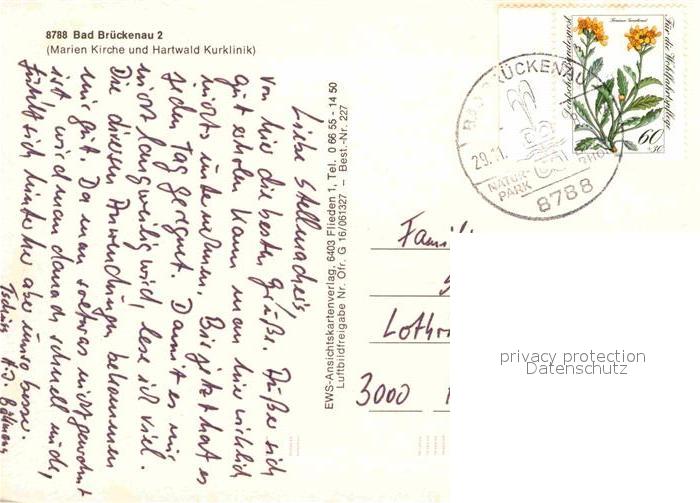 8788 Bad Brückenau 2
(Marien Kirche und Hartwald Kurklinik)
Liebe Stellmacher's
von hier die besten Grüße. Daße sich
gut erholen kann man hier wirklich
nichts unternehmen. Bis jetzt hat es
jeden Tag geregnet. Damit es mir
nicht langweilig wird, lese ich viel.
Die diversen Anwendungen bekommen
mir gut. Da man so etwas nicht gewohnt
ist wird man danach schnell müde,
fühlt sich hinterher aber umso besser.
Tschüss
EWS-Ansichtskartenverlag, 6403 Flieden 1, Tel. 0 66 55 - 14 50
Luftbildfreigabe Nr. Ofr. G 16/061327 – Best.-Nr. 227
BAD BRÜCKENAU
29.11.
NATUR-
PARK
RHÖN
8788
Deutsche Bundespost
Für die Wohlfahrtspflege
60
+30
Famili
Lothr
3000
privacy protection
Datenschutz